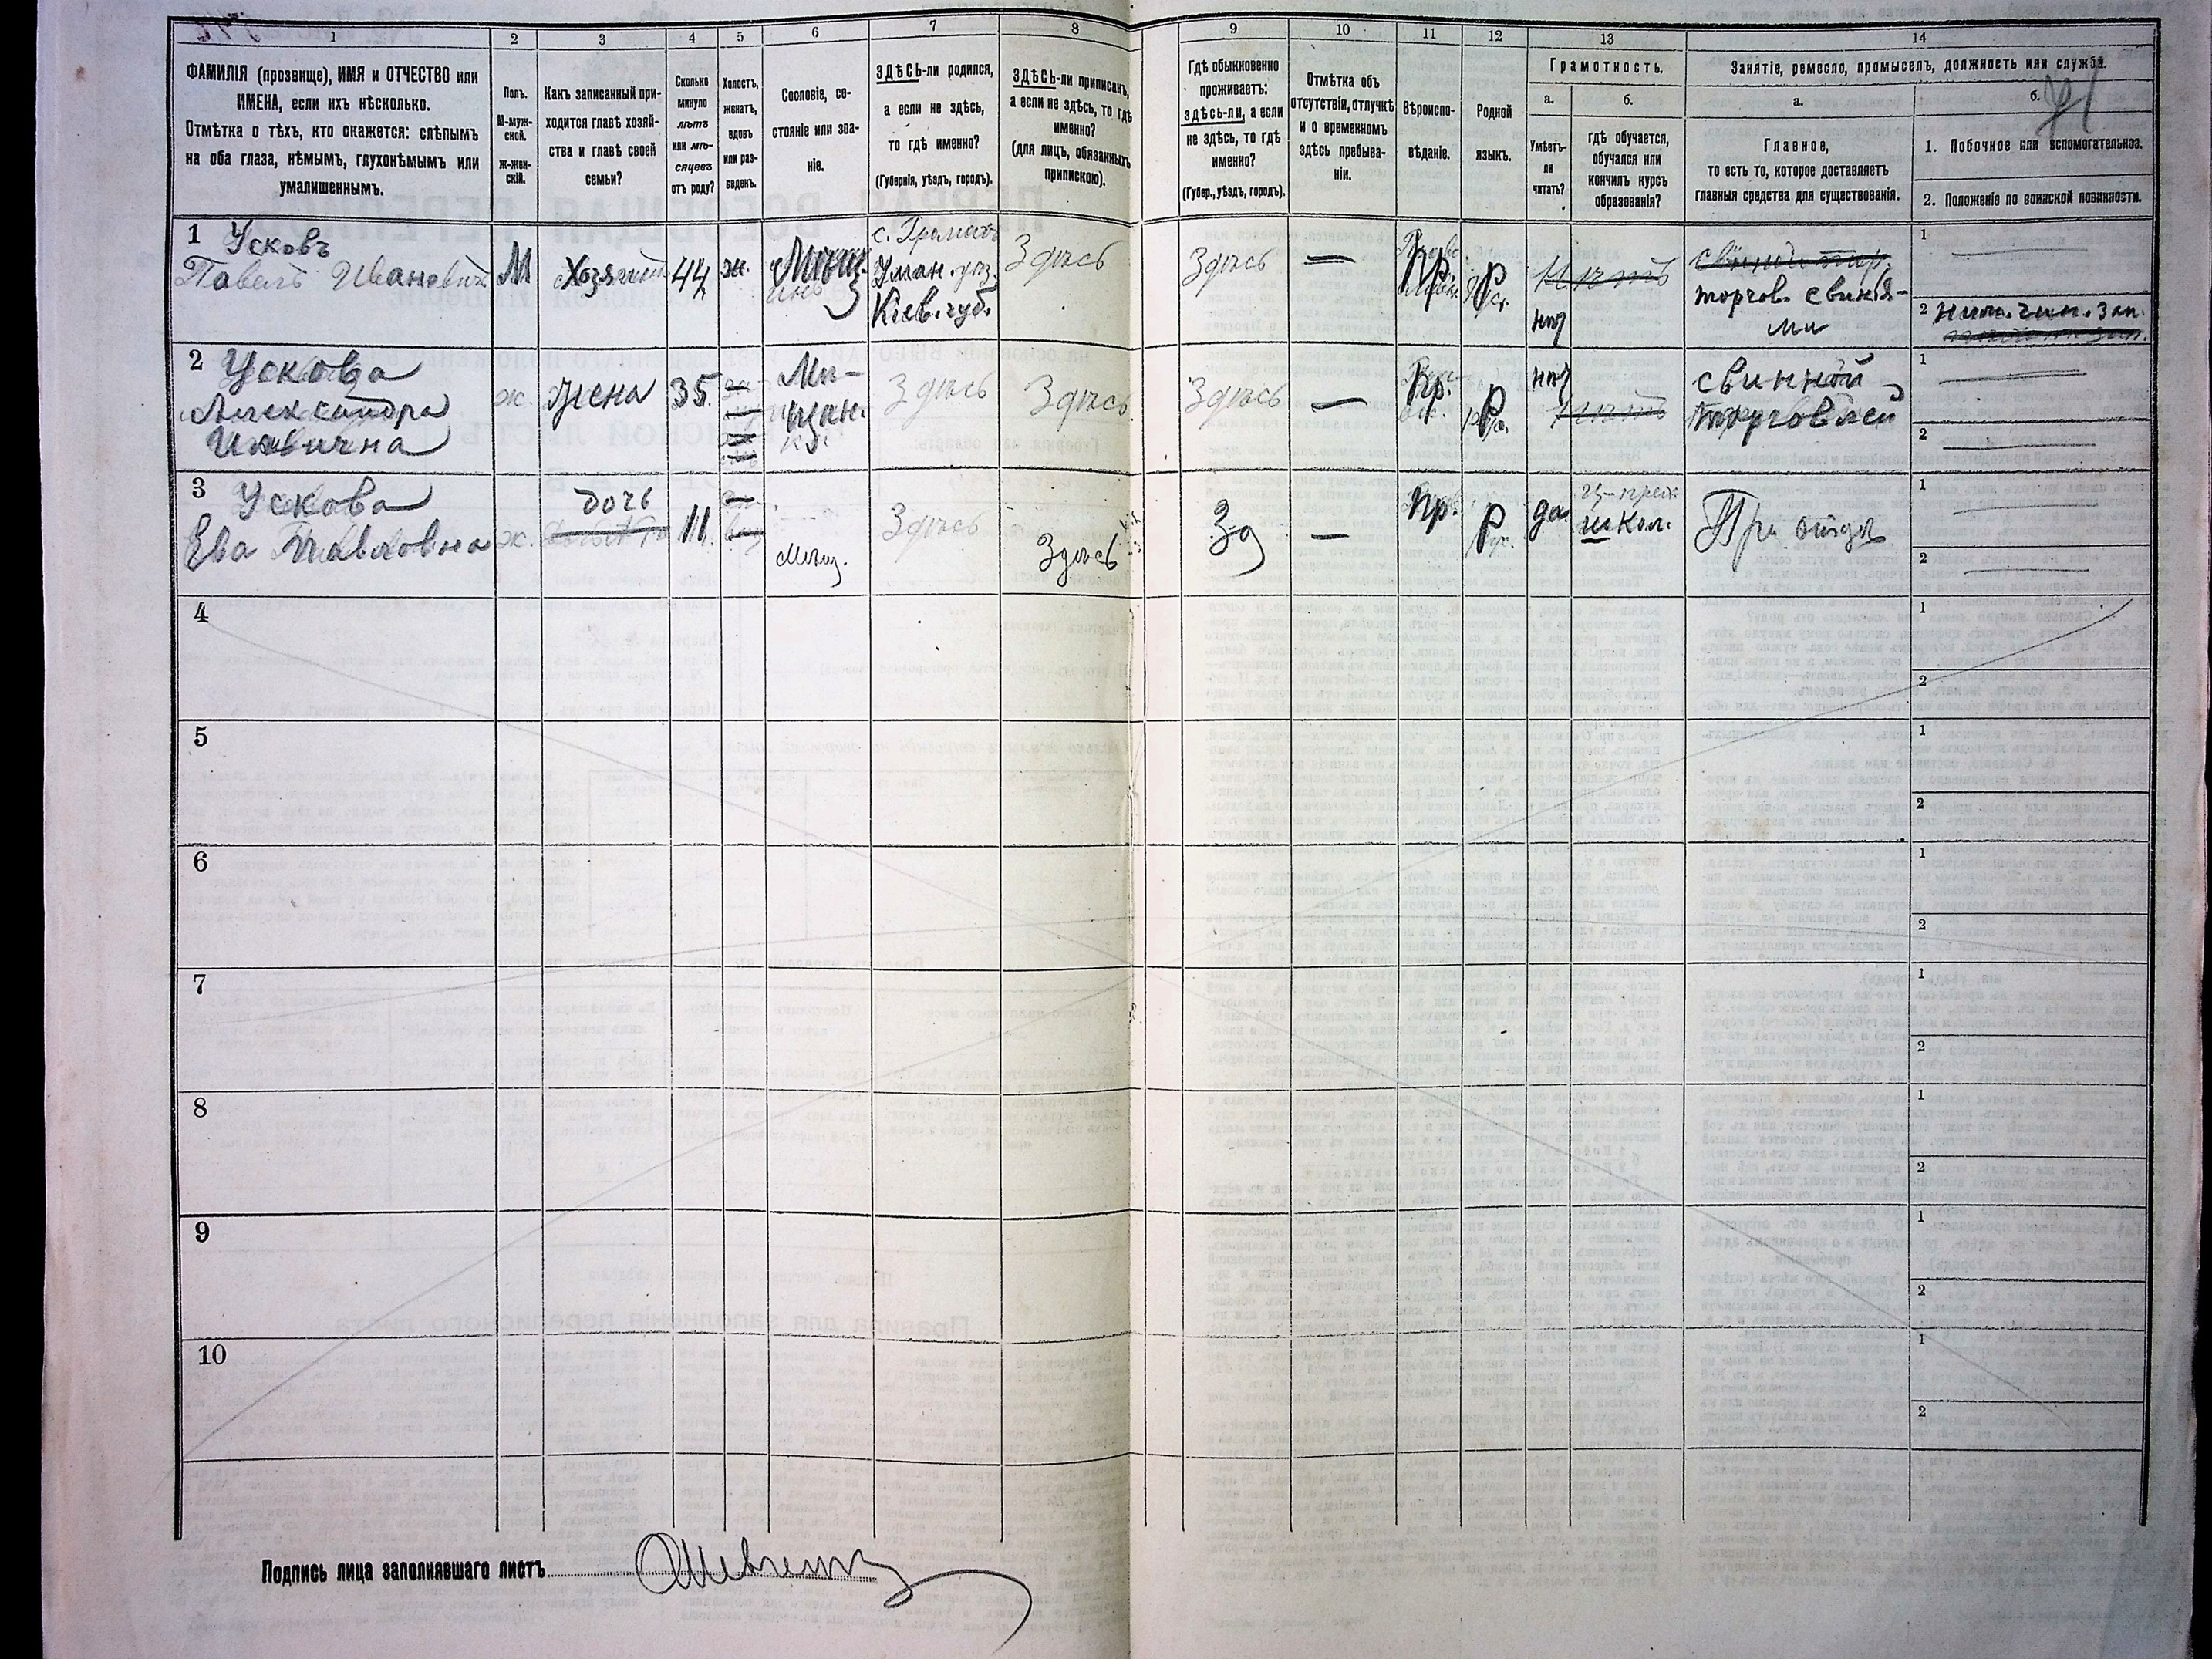 1 2 3 4 5 6 7 8 9 10 11 12 13 14
ФАМИЛІЯ (прозвище), ИМЯ и ОТЧЕСТВО или
ИМЕНА, если ихъ нѣсколько.
Отмѣтка о тѣхъ, кто окажется: слѣпымъ
на оба глаза, нѣмымъ, глухонѣмымъ или
умалишеннымъ.
Полъ.
М-муж-
ской.
ж-жен-
скій.
Какъ записанный при-
ходится главѣ хозяй-
ства и главѣ своей
семьи?
Сколько
минуло
лѣтъ
или мѣ-
сяцевъ
отъ роду?
Холостъ,
женатъ,
вдовъ
или раз-
веденъ.
Сословіе, со-
стояніе или зва-
ніе.
ЗДѢСЬ-ли родился,
а если не здѣсь,
то гдѣ именно?
(Губернія, уѣздъ, городъ).
ЗДѢСЬ-ли приписанъ,
а если не здѣсь, то гдѣ
именно?
(для лицъ, обязанныхъ
припискою).
Гдѣ обыкновенно
проживаетъ:
здѣсь-ли, а если
не здѣсь, то гдѣ
именно?
(Губер., уѣздъ, городъ).
Отмѣтка объ
отсутствіи, отлучкѣ
и о временномъ
здѣсь пребыва-
ніи.
Вѣроиспо-
вѣданіе.
Родной
языкъ.
Грамотность.
а.
Умѣетъ-
ли
читать?
б.
гдѣ обучается,
обучался или
кончилъ курсъ
образованія?
Занятіе, ремесло, промыселъ, должность или служба.
а.
Главное,
то есть то, которое доставляетъ
главныя средства для существованія.
б.
1. Побочное или вспомогательное.
2. Положеніе по воинской повинности.
1 Усковъ
Павелъ Ивановичъ
М
Хозяинъ
44
ж.
Мѣщ.
Уман. уѣз.
Кіев. губ.
Здѣсь
Здѣсь
—
Пр.
Р
нѣтъ
торгов. свинья-
ми
1
2
2 Ускова
Александра
ж.
жена
35
Мѣ-
щан.
Здѣсь
Здѣсь
Здѣсь
—
Пр.
Р
свинной
торговлей
1
2
3 Ускова
Ева Павловна
ж.
дочь
11
Мѣщ.
Здѣсь
Здѣсь
Зд
—
Пр.
Р
да
школ.
При отцѣ
1
2
4
1
2
5
1
2
6
1
2
7
1
2
8
1
2
9
1
2
10
1
2
Подпись лица заполнявшаго листъ